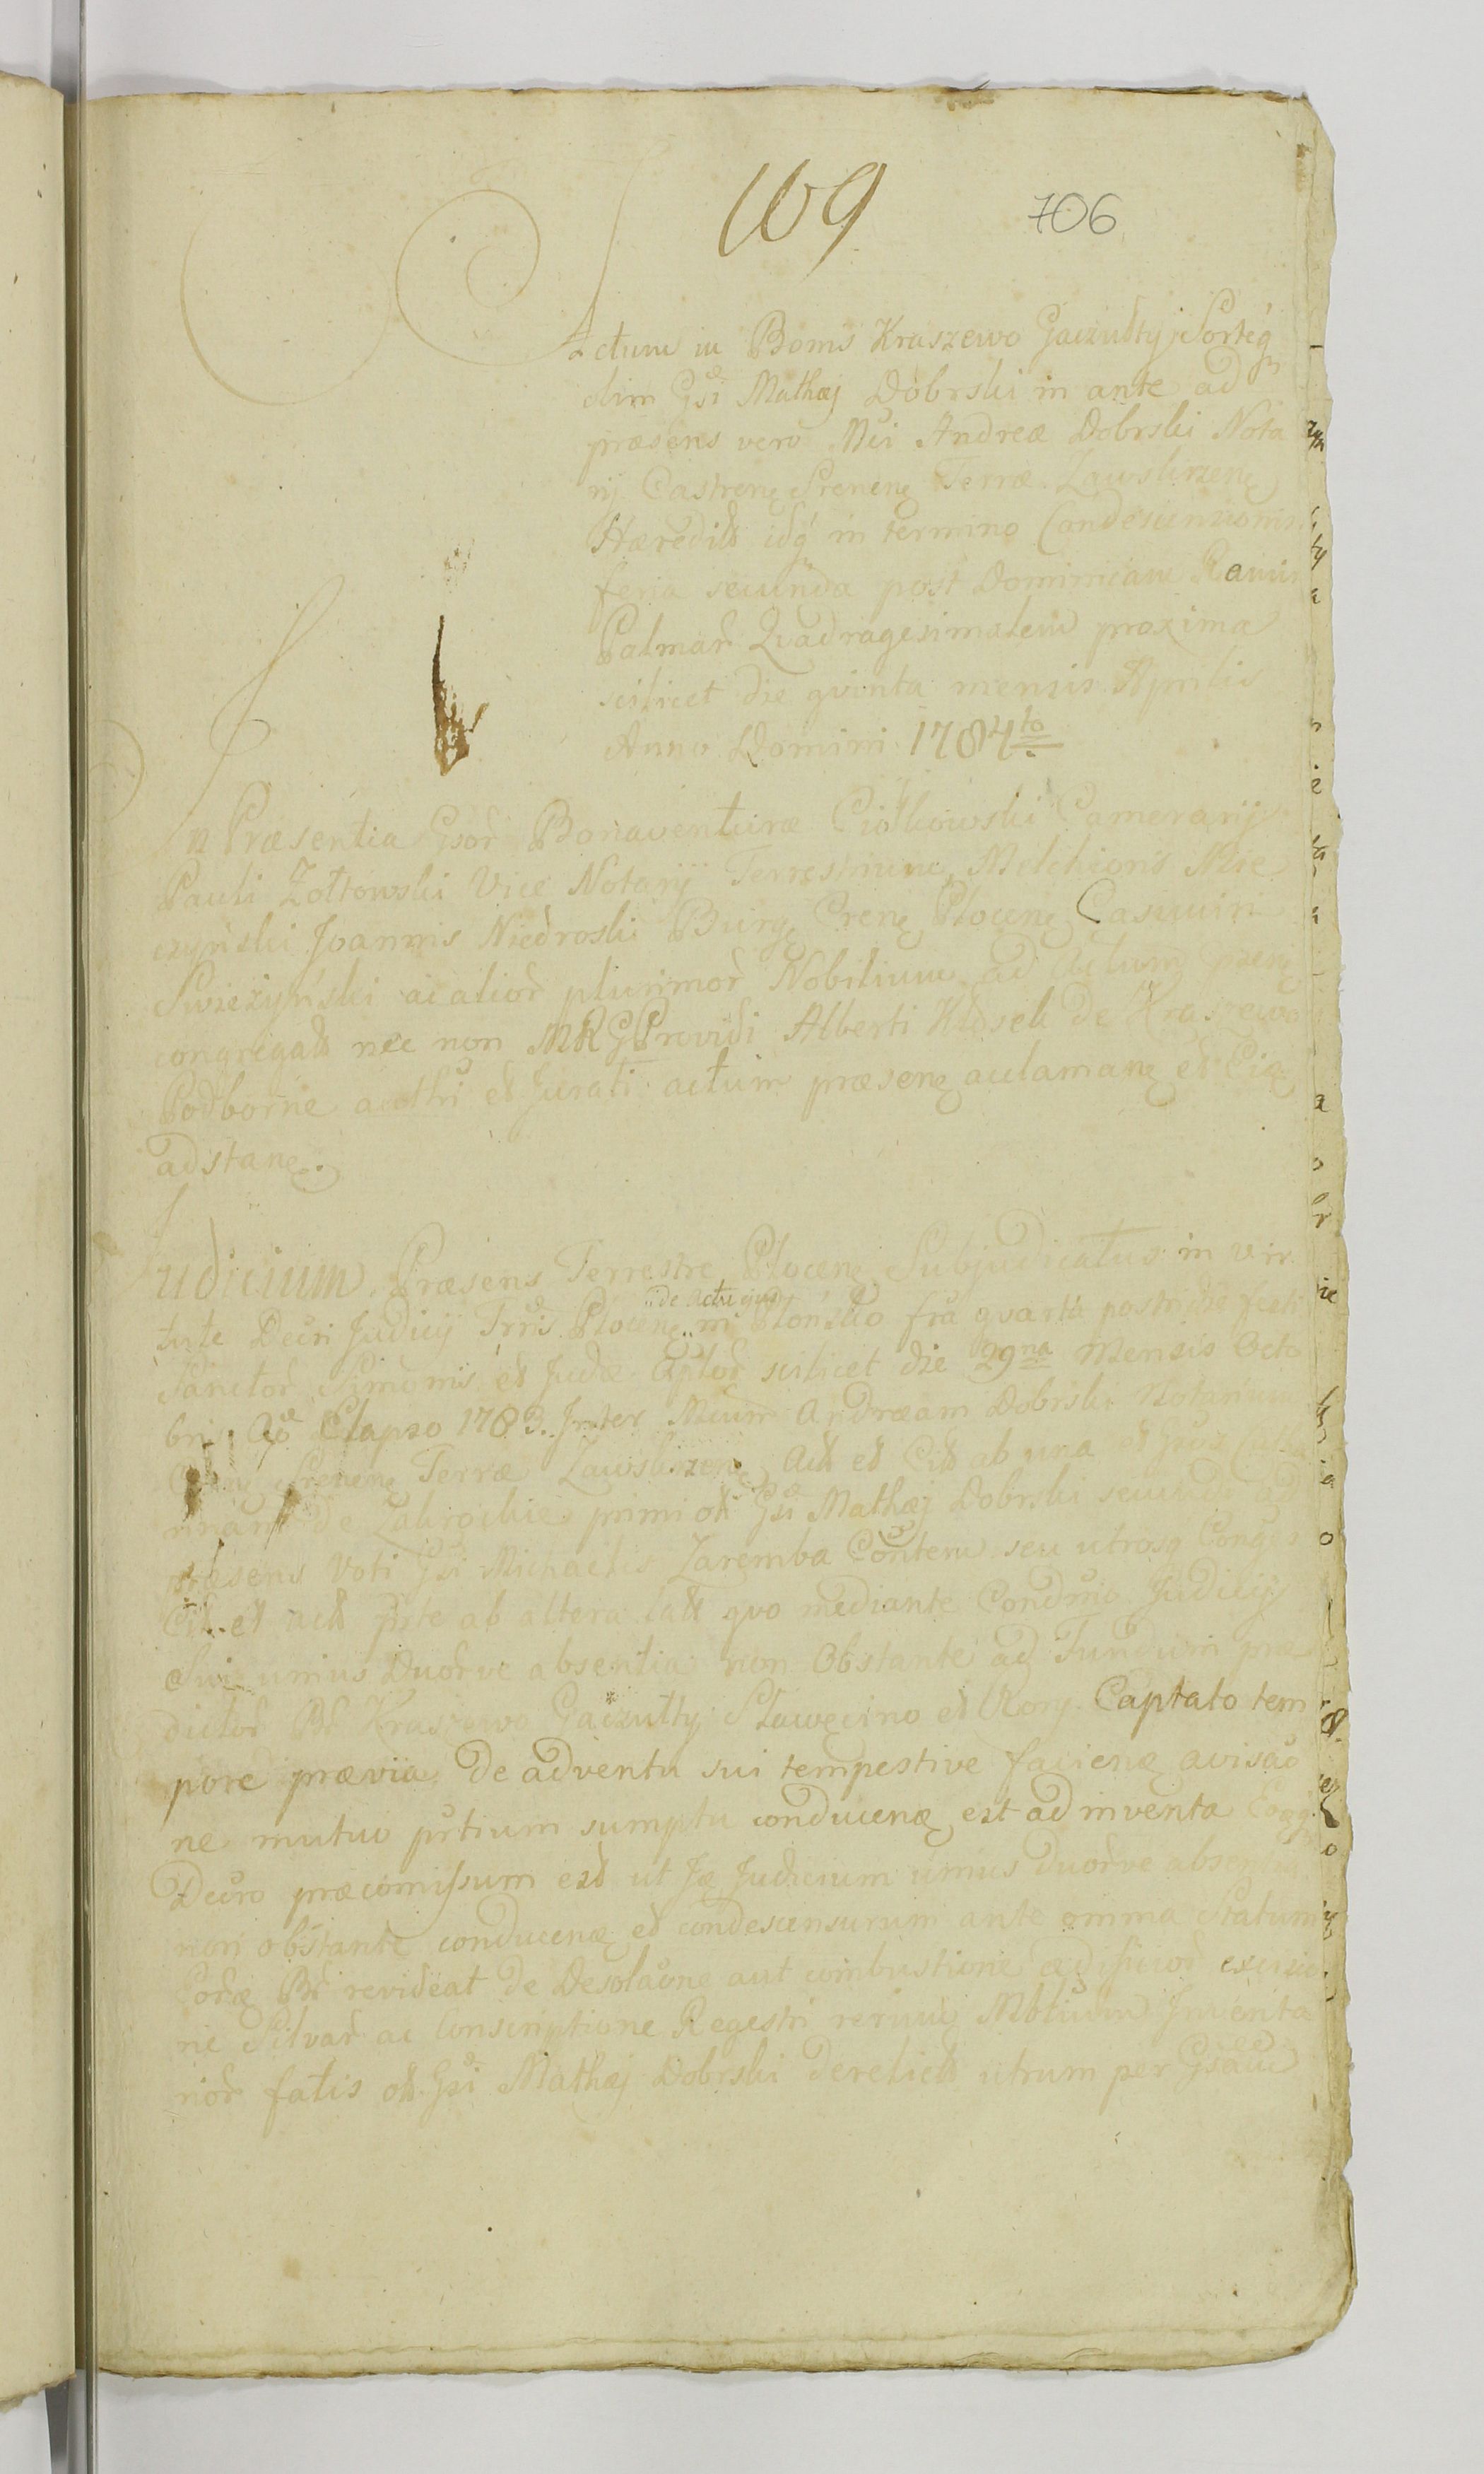 169
706
Actum in Bonis Kraszewo Gaczulty Sorteq
olim Gsi Mathæj Dobrski in ante ad
præsens vero Mci Andreæ Dobrski Nota
rij Castren Srenen Terræ Zawskrzen
Hæredit idq in termino Condescensionis
feria secunda post Dominicam Ramis
Palmar Quadragesimalem proxima
scilicet die qvinta mensis Aprilis
Anno Domini 1784to
In Præsentia Gsor Bonaventuræ Ciółkowski Camerarij
Pauli Zołtowski Vice Notarij Terrestrium Melchioris Mie
czyński Joannis Niedroski Burg Cren Plocen Casimiri
Swiezyński ac alior plurimor Nobilium ad Actum præn
congregatt nec non Providi Alberti de Kraszewo
Podborne et Jurati actum præsen acclaman et
adstan.
Judicium Præsens Terrestre Plocen Subjudicatus in vir
tute Decri Judicij Trris Plocen de Actu ejus in Płońsko fra qvarta postridie festi
Sanctor Simonis et Judæ Aplor scilicet die 29na Mensis Octo
bris Ao Elapso 1783. Inter Mcum Andræam Dobrski Notarium
Cren Srenen Terræ Zawskrzen Act et Cit ab una et
de Zakrockie primi ott Gsi Mathæj Dobrski secundi ad
præsens Voti Gsi Michaelis Zaremba Contem seu utrosq Conges
Cit et act prte ab altera latt qvo mediante Condmio Judicij
Sui unius Duorve absentia non Obstante ad Fundum præ
dictor Br Kraszewo Gaczulty Sławęcino et Captato tem
pore prævia de adventu sui tempestive facien avisao
ne mutuo prtium sumptu conducen est ad inventa
Decro præcomissum est ut Judicium unius Duorve absentia
non obstante conducen et condescensurum ante omnia Statum
eord Br revideat de Desolaone aut combustione ædificior
ne Silvar ac Conscriptione Regestri rerum Mblium Inventa
rior fatis ott Gsi Mathæj Dobrski derelict utrum per Gsam